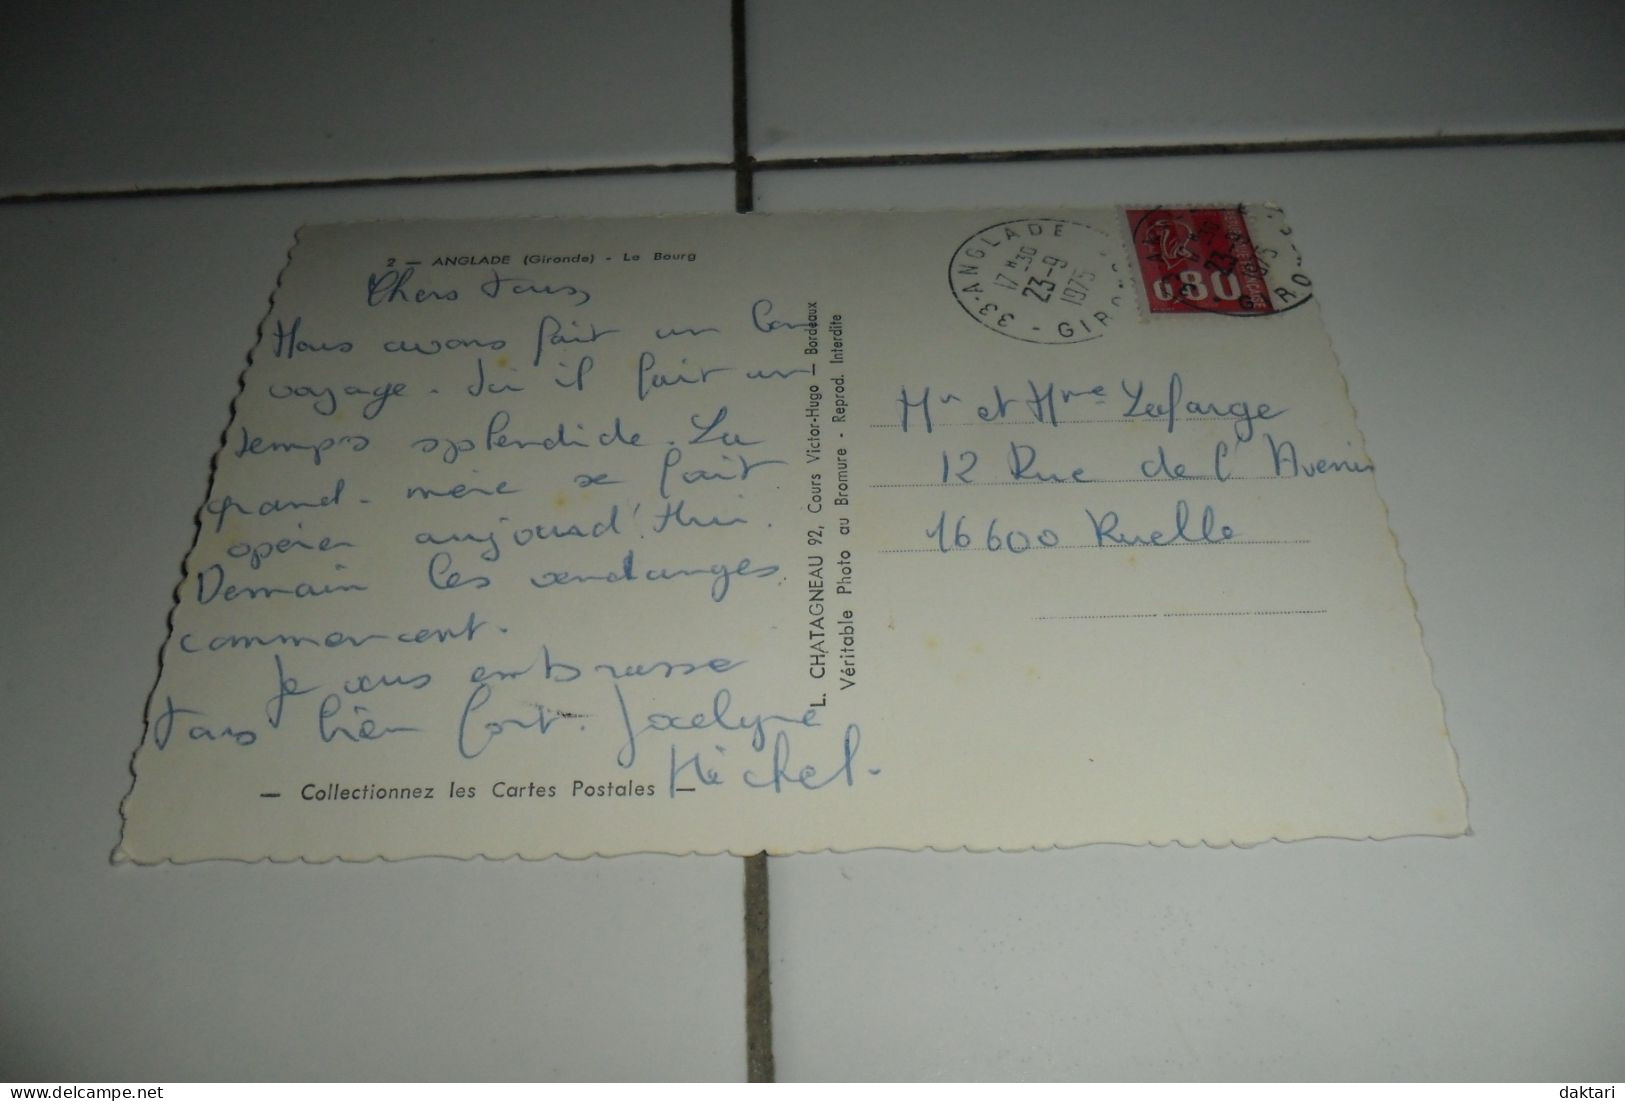 2 — ANGLADE (Gironde) - Le Bourg
Chers tous,
Nous avons fait un bon
voyage. Ici il fait un
temps splendide. La
grand-mère se fait
opérer aujourd'hui.
Demain les vendanges
commencent.
Je vous embrasse
tous bien fort. Jocelyne
Michel.
— Collectionnez les Cartes Postales —
L. CHATAGNEAU 92, Cours Victor-Hugo — Bordeaux
Véritable Photo au Bromure - Reprod. Interdite
33-ANGLADE
17H30
23-9
1975
- GIRON
0,80
17H30
23-9
1975
GIRON
Mr et Mme Lafarge
12 Rue de l'Avenir
16600 Ruelle
daktari